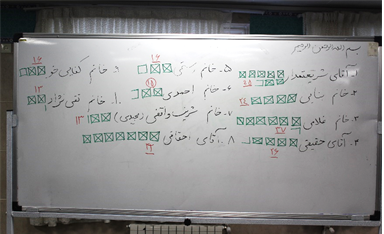 بسم الله الرحمن الرحیم
آقای شریعتمدار
۲۵
۲. خانم
۲۲
۳. خانم غلامی
۲۷
۴. آقای حقیقی
۲۶
۵. خانم
۱۶
۶. خانم احمدی
۱۵
۷. خانم شریف واقفی (مجیدی)
۱۳
۸. آقای احقاقی
۳۴
۹. خانم کتابی خو
۱۶
۱۰. خانم تقی نژاد
۱۳